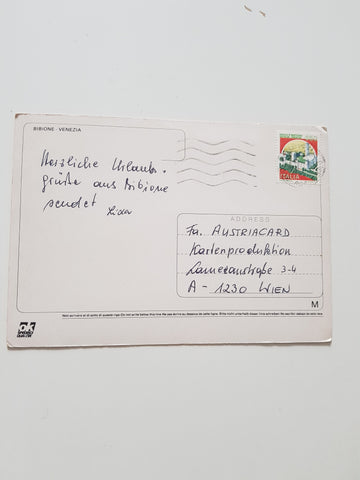 BIBIONE - VENEZIA
Herzliche Urlaubs-
grüße aus Bibione
sendet
ITALIA
ADDRESS
Fa. AUSTRIACARD
Kartenproduktion
Lamezanstraße 3-4
A - 1230 WIEN
M